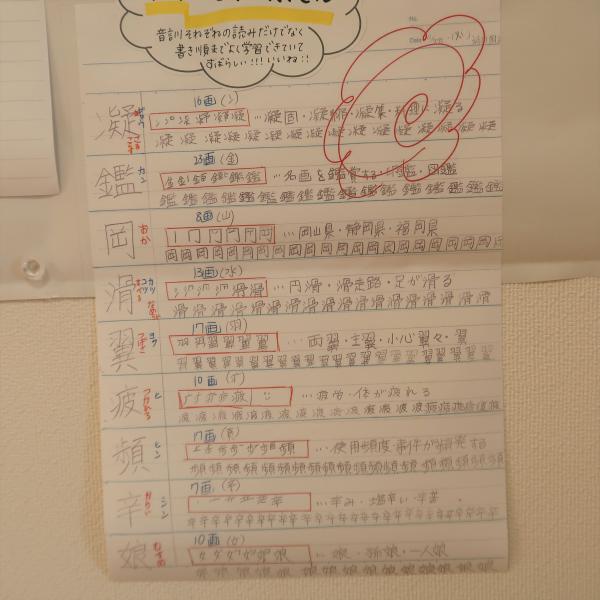 音訓それぞれの読みだけでなく
書き順までよく学習できていて
すばらしい!!!いいね!!
No.
Date
16画(冫)
凝 ギョウ こる こらす …凝固・凝縮・凝集・
凝凝凝凝凝凝凝凝凝凝凝凝凝
23画(金)
鑑 カン …名画を鑑賞する・図鑑
鑑鑑鑑鑑鑑鑑鑑鑑鑑鑑鑑鑑鑑鑑鑑
8画(山)
岡 おか …岡山県・静岡県・福岡県
岡岡岡岡岡岡岡岡岡岡岡岡岡岡岡岡岡岡岡岡
13画(水)
滑 カツ コツ すべる なめらか …円滑・滑走路・足が滑る
滑滑滑滑滑滑滑滑滑滑滑滑滑滑滑滑
17画(羽)
翼 ヨク つばさ …両翼・主翼・小心翼々・翼
翼翼翼翼翼翼翼翼翼翼翼翼翼翼翼翼翼翼翼翼
10画(疒)
疲 ヒ つかれる …疲労・体が疲れる
疲疲疲疲疲疲疲疲疲疲疲疲疲疲疲疲疲疲
17画(頁)
頻 ヒン …使用頻度 事件が頻発する
頻頻頻頻頻頻頻頻頻頻頻頻頻頻頻頻頻頻頻
7画(辛)
辛 シン からい …辛み・塩辛い・辛苦
辛辛辛辛辛辛辛辛辛辛辛辛辛辛辛辛辛辛辛辛
10画(女)
娘 むすめ …娘・孫娘・一人娘
娘娘娘娘娘娘娘娘娘娘娘娘娘娘